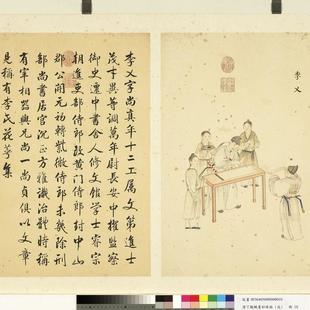 李乂字尚真年十二工属文第進士
茂才異等調萬年尉長安中擢監察
御史遷中書舍人修文館學士睿宗
朝進吏部侍郎改黄門侍郎封中山
郡公開元初轉紫微侍郎未幾除刑
部尚書居官沉正方雅識治體時稱
有宰相器與兄尚一尚貞俱以文章
是稱有李氏花萼集
李乂